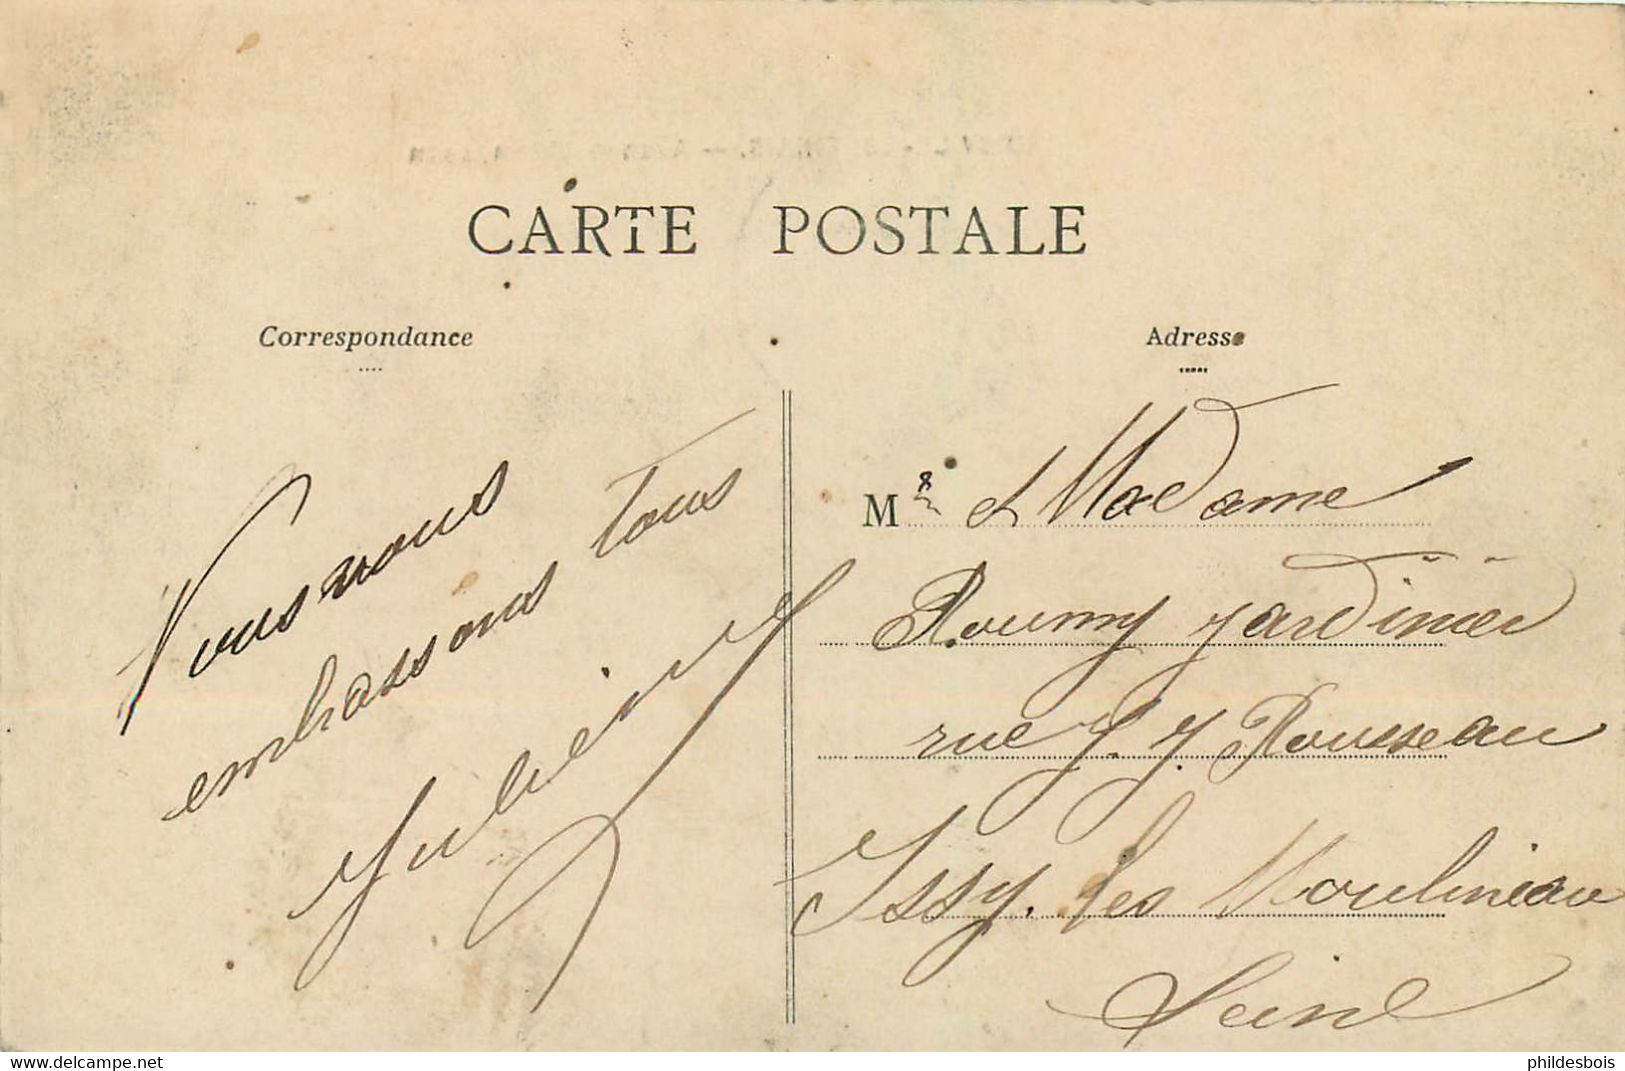 CARTE POSTALE
Correspondance
Adresse
Vous nous
embrassons tous
Julien
Mr et Madame
Roumy jardinier
rue J. J. Rousseau
Issy. les Moulineau
Seine
delcampe.net
phildesbois